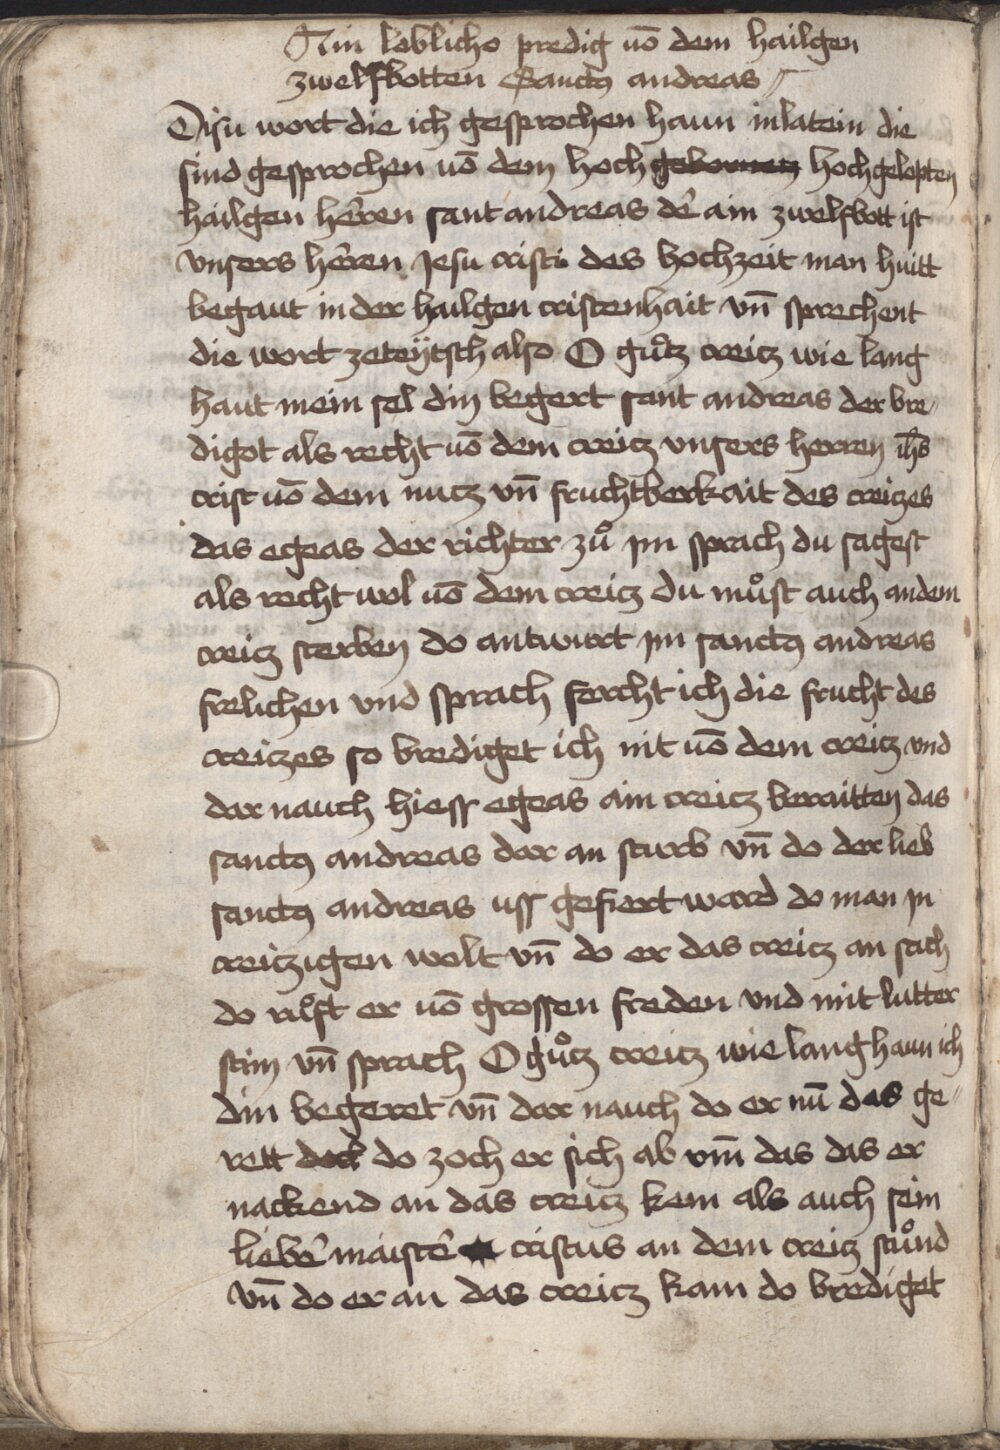 Ain loblicho predig uō dem hailgen
zwelfbotten Sanctꝯ andreas
Disu wort die ich gesprochen haun in latein die
sind gesprochen uō dem hoch hochgelopten
hailgen hēren sant andreas dē ain zwelfbott ist
vnsers hēren Jesu cristi des hochzeit man huitt
begaut in der hailgen cristenhait vn̄ sprechent
die wort zeteÿtsch also O gůtz creitz wie lang
haut mein sel din begert sant andreas der bre⸗
digot als recht uō dem creitz vnsers herren ih̄s
crist uō dem nutz vn̄ fruchtberkait des creitzes
das egeas der richter zů jm sprach du sagest
als recht wol uō dem creitz du můst auch an dem
creitz sterben do antwurt jm sanctꝯ andreas
frelichen vnd sprach forcht ich die frucht des
creitzes so brediget ich nit uō dem creitz vnd
dar nauch hiess egeas ain creitz beraitten das
sanctꝯ andreas dar an sturb vn̄ do der lieb
sanctꝯ andreas uss gefiert ward do man jn
creitzigen wolt vn̄ do er das creitz an sach
do růft er uō grossen freden vnd mit lutter
stim vn̄ sprach O gůtz creitz wie lang haun ich
din begeret vn̄ dar nauch do er nū das ge⸗
rett do zoch er sich ab vm̄ das das er
nackend an das creitz kem als auch sein
liebē maistē cristus an dem creitz stůnd
vn̄ do er an das creitz kam do brediget